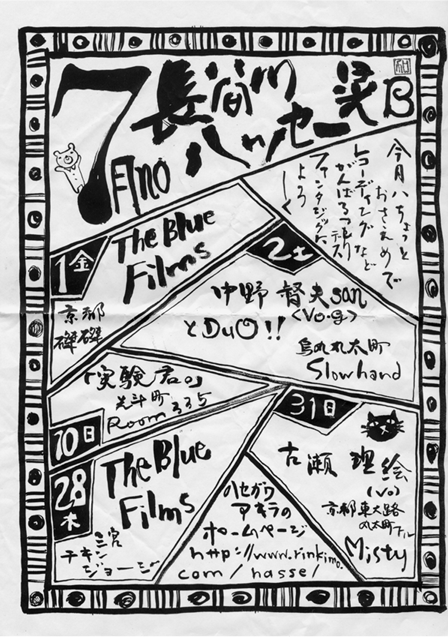 7月の
長谷川
ハッセー晃
B
今月ハちょっと
おさえめで
レコーディングなど
がんばるつもりデス
ファンタジックに
よろ
しく
1金
The Blue
Films
京都
磔磔
2土
中野督夫san
<Vo.g>
とDuO!!
烏丸丸太町
Slowhand
10日
「実験君の」
先斗町
Room 335
28木
The Blue
Films
三宮
チキン
ジョージ
31日
古瀬理絵
(vo)
京都東大路
丸太町
Misty
ハセガワ
アキラの
ホームページ
http://www.rinkimo.
com/hasse/